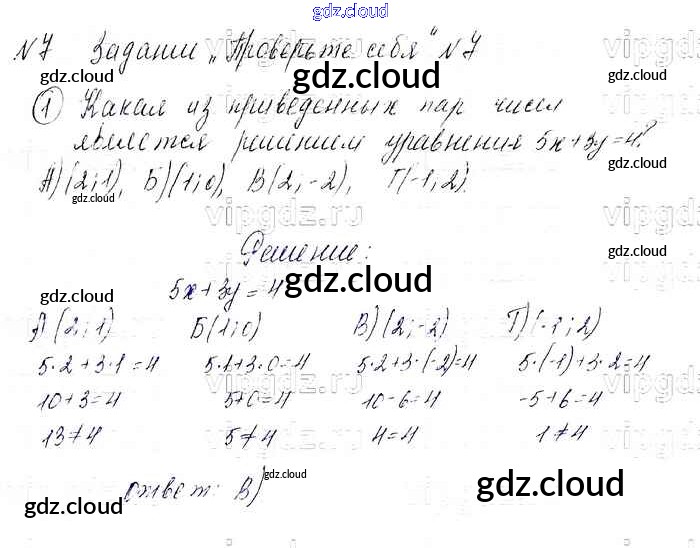 gdz.cloud
№7 Задании „Проверьте себя" №7
gdz.cloud
① Какая из приведенных пар чисел
является решением уравнения 5x+3y=4?
А)(2;1), Б)(1;0), В(2;-2), Г(-1;2).
gdz.cloud
vipgdz.ru
Решение:
gdz.cloud
5x+3y=4
gdz.cloud
gdz.cloud
А (2;1) Б(1;0) В)(2;-2) Г)(-1;2)
5·2+3·1=4 5·1+3·0=4 5·2+3·(-2)=4 5·(-1)+3·2=4
gdz.cloud
gdz.cloud
10+3=4 5+0=4 10-6=4 -5+6=4
13≠4 5≠4 4=4 1≠4
ответ: В)
gdz.cloud
gdz.cloud
gdz.cloud